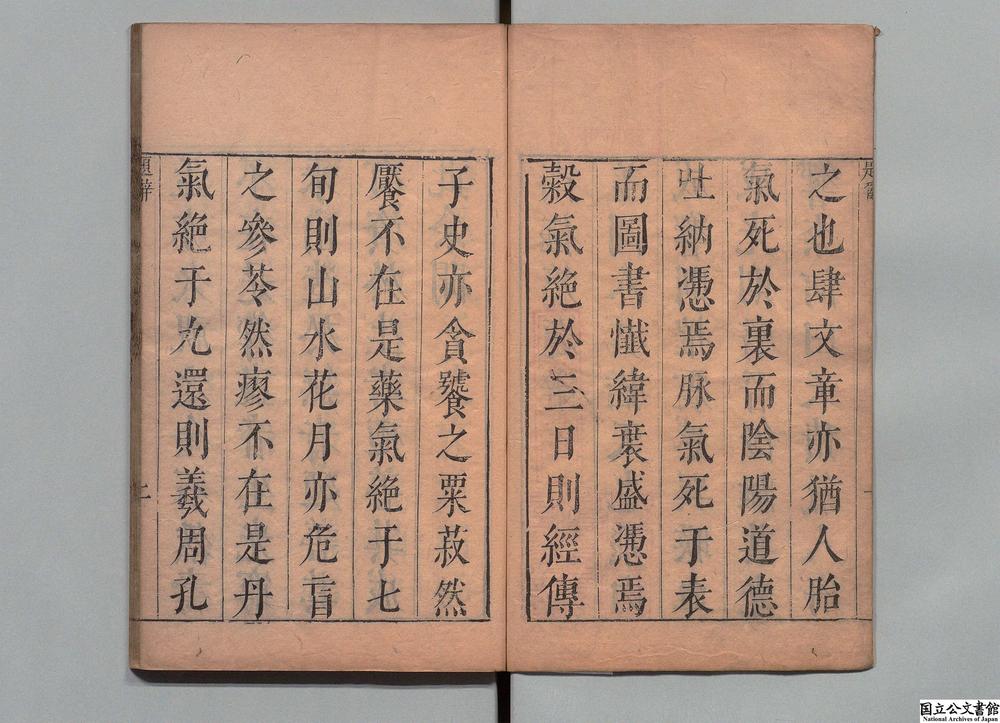 之也肆文章亦猶人胎
氣死於裏而陰陽道德
吐納憑焉脉氣死于表
而圖書懺緯衰盛憑焉
穀氣絶於三日則經傳
子史亦貪饕之粟菽然
饜不在是藥氣絶于七
旬則山水花月亦危盲
之參苓然瘳不在是丹
氣絶于九還則羲周孔
題辭
国立公文書館
National Archives of Japan